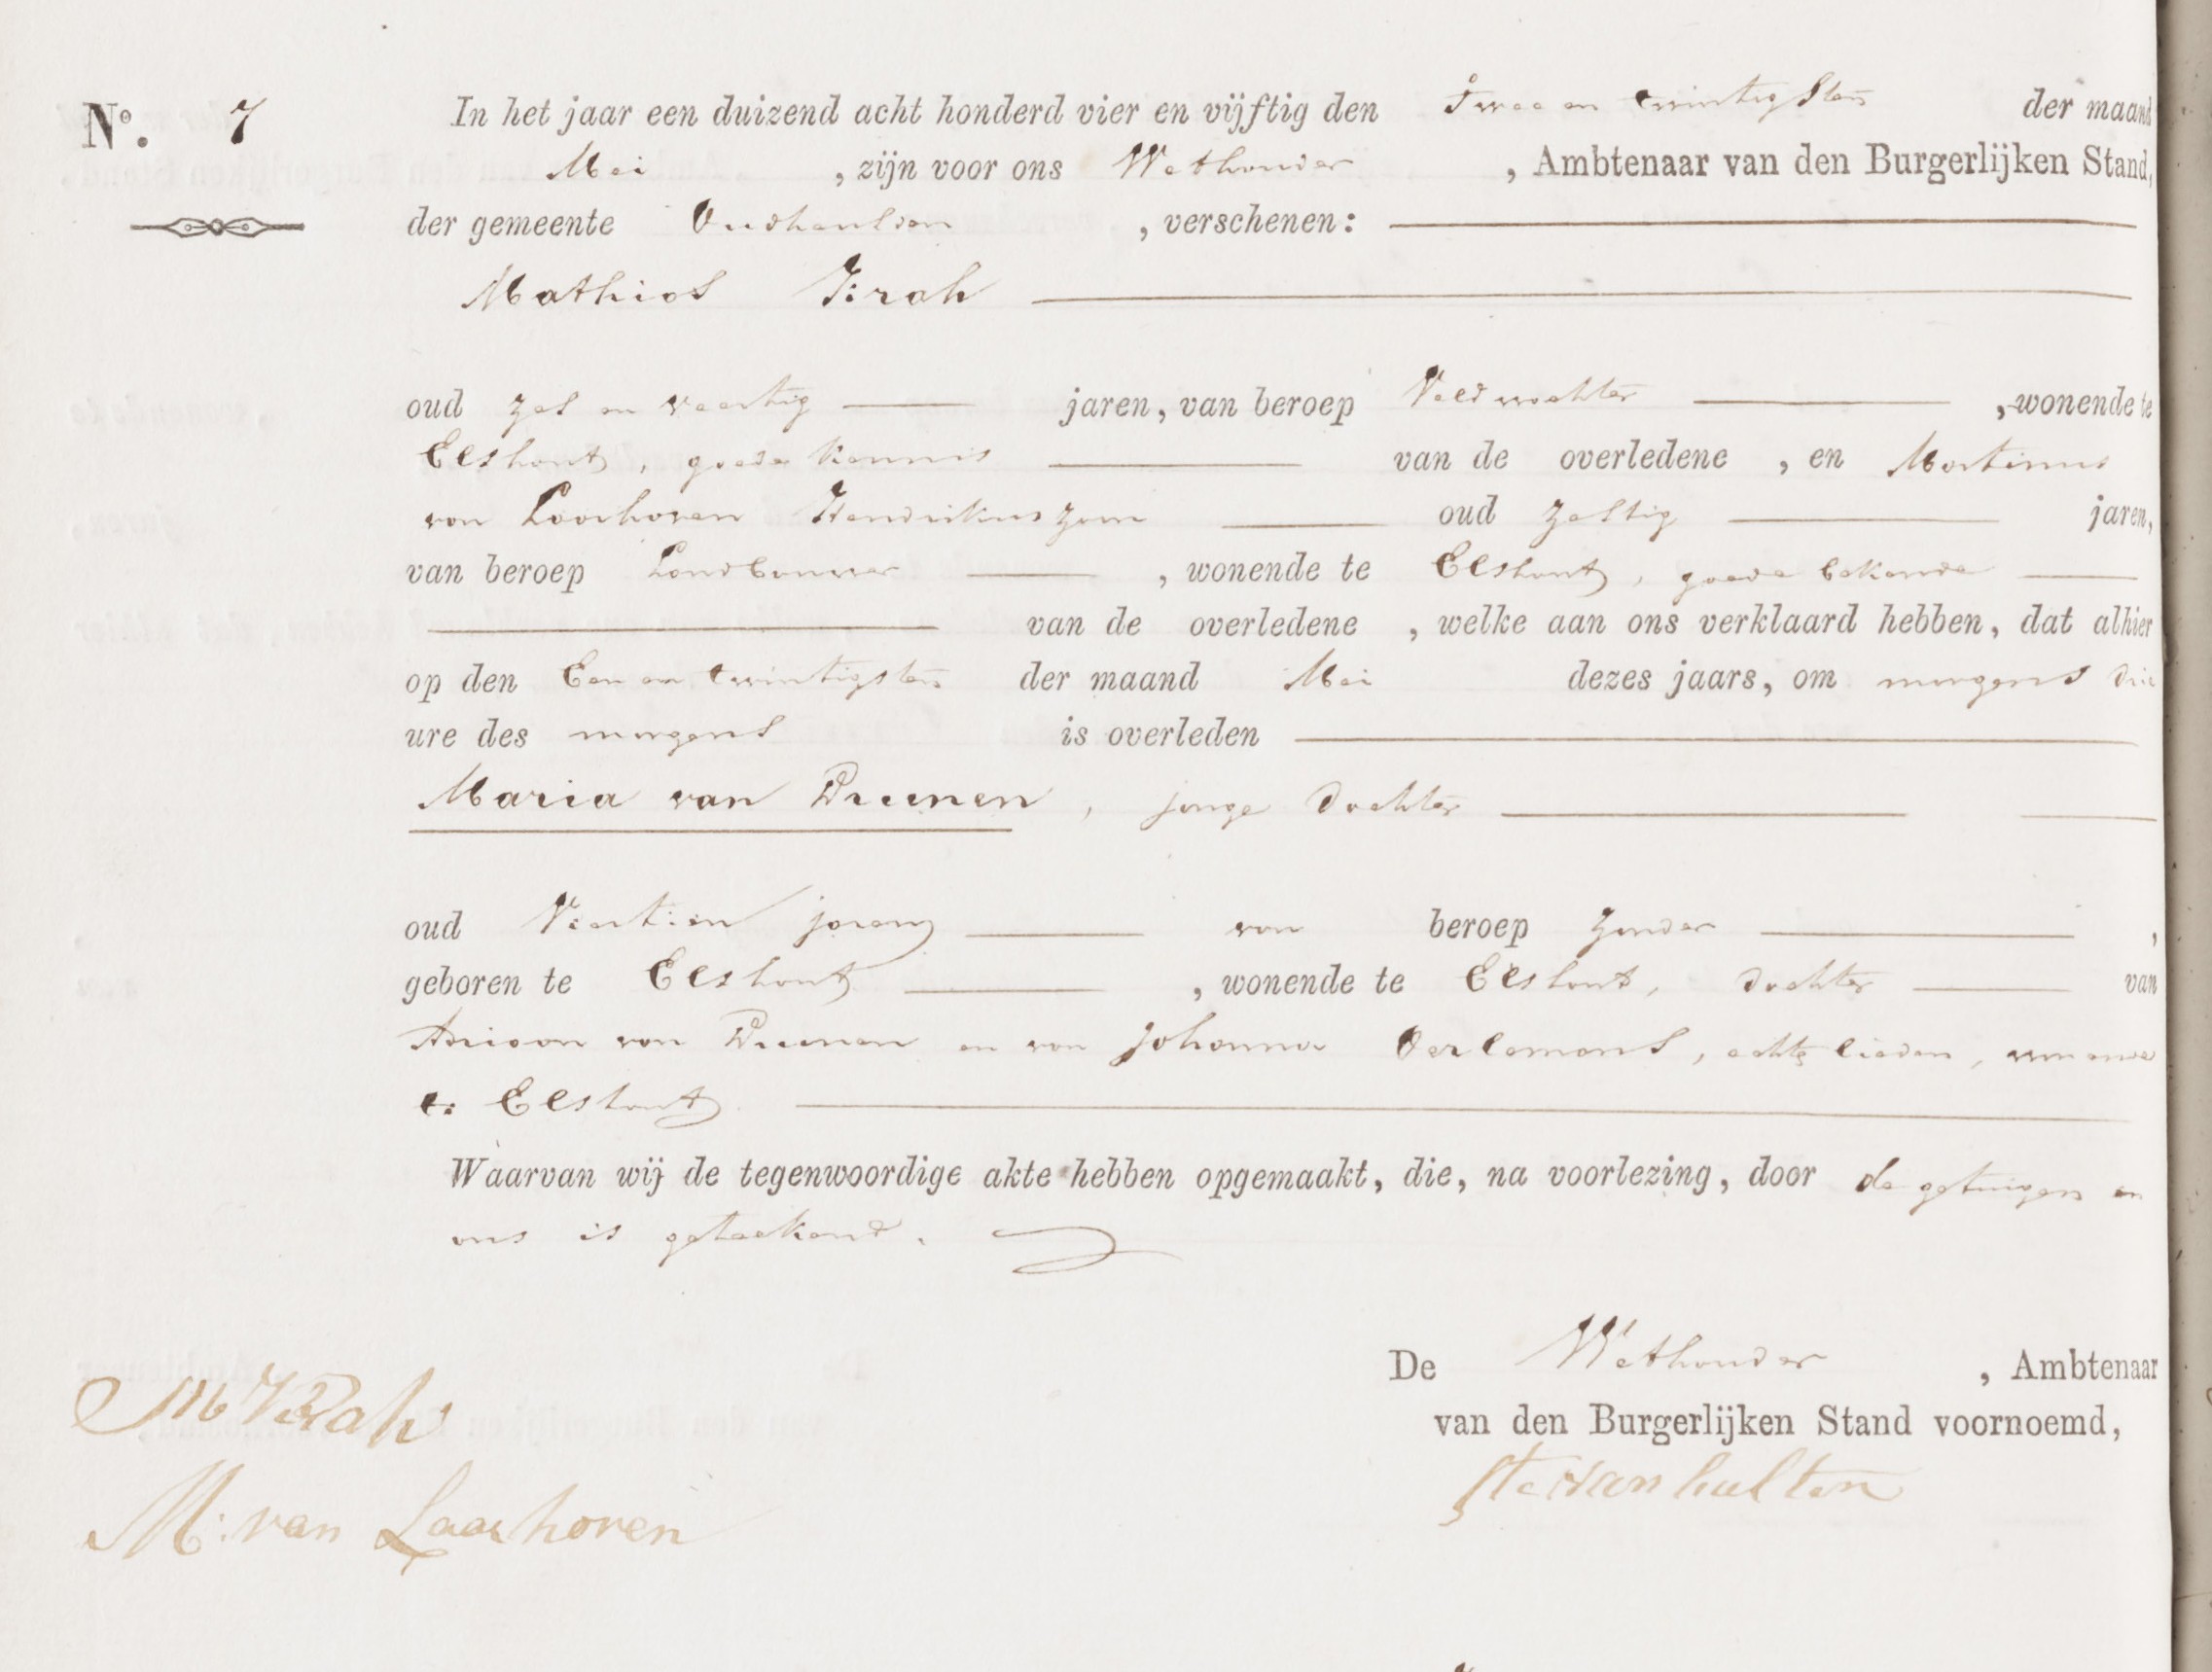 No. 7 In het jaar een duizend acht honderd vier en vijftig den Twee en twintigsten der maand
Mei , zijn voor ons Wethouder , Ambtenaar van den Burgerlijken Stand,
der gemeente Oudheusden , verschenen:
Mathias
oud zes en veertig jaren, van beroep Veldwachter , wonende te
Elshout, goede kennis van de overledene , en Martinus
van Laarhoven Hendrikus zoon oud zestig jaren,
van beroep Landbouwer , wonende te Elshout, goede bekende
van de overledene , welke aan ons verklaard hebben, dat alhier
op den Een en twintigsten der maand Mei dezes jaars, om morgens drie
ure des morgens is overleden
Maria van Drunen, jonge dochter
oud Veertien jaren van beroep zonder ,
geboren te Elshout , wonende te Elshout, dochter van
Adriaan van Drunen en van Johanna Oerlemans, echte lieden, wonende
te Elshout
Waarvan wij de tegenwoordige akte hebben opgemaakt, die, na voorlezing, door de getuigen en
ons is geteekend.
De Wethouder , Ambtenaar
van den Burgerlijken Stand voornoemd,
van hulten
M: van Laarhoven